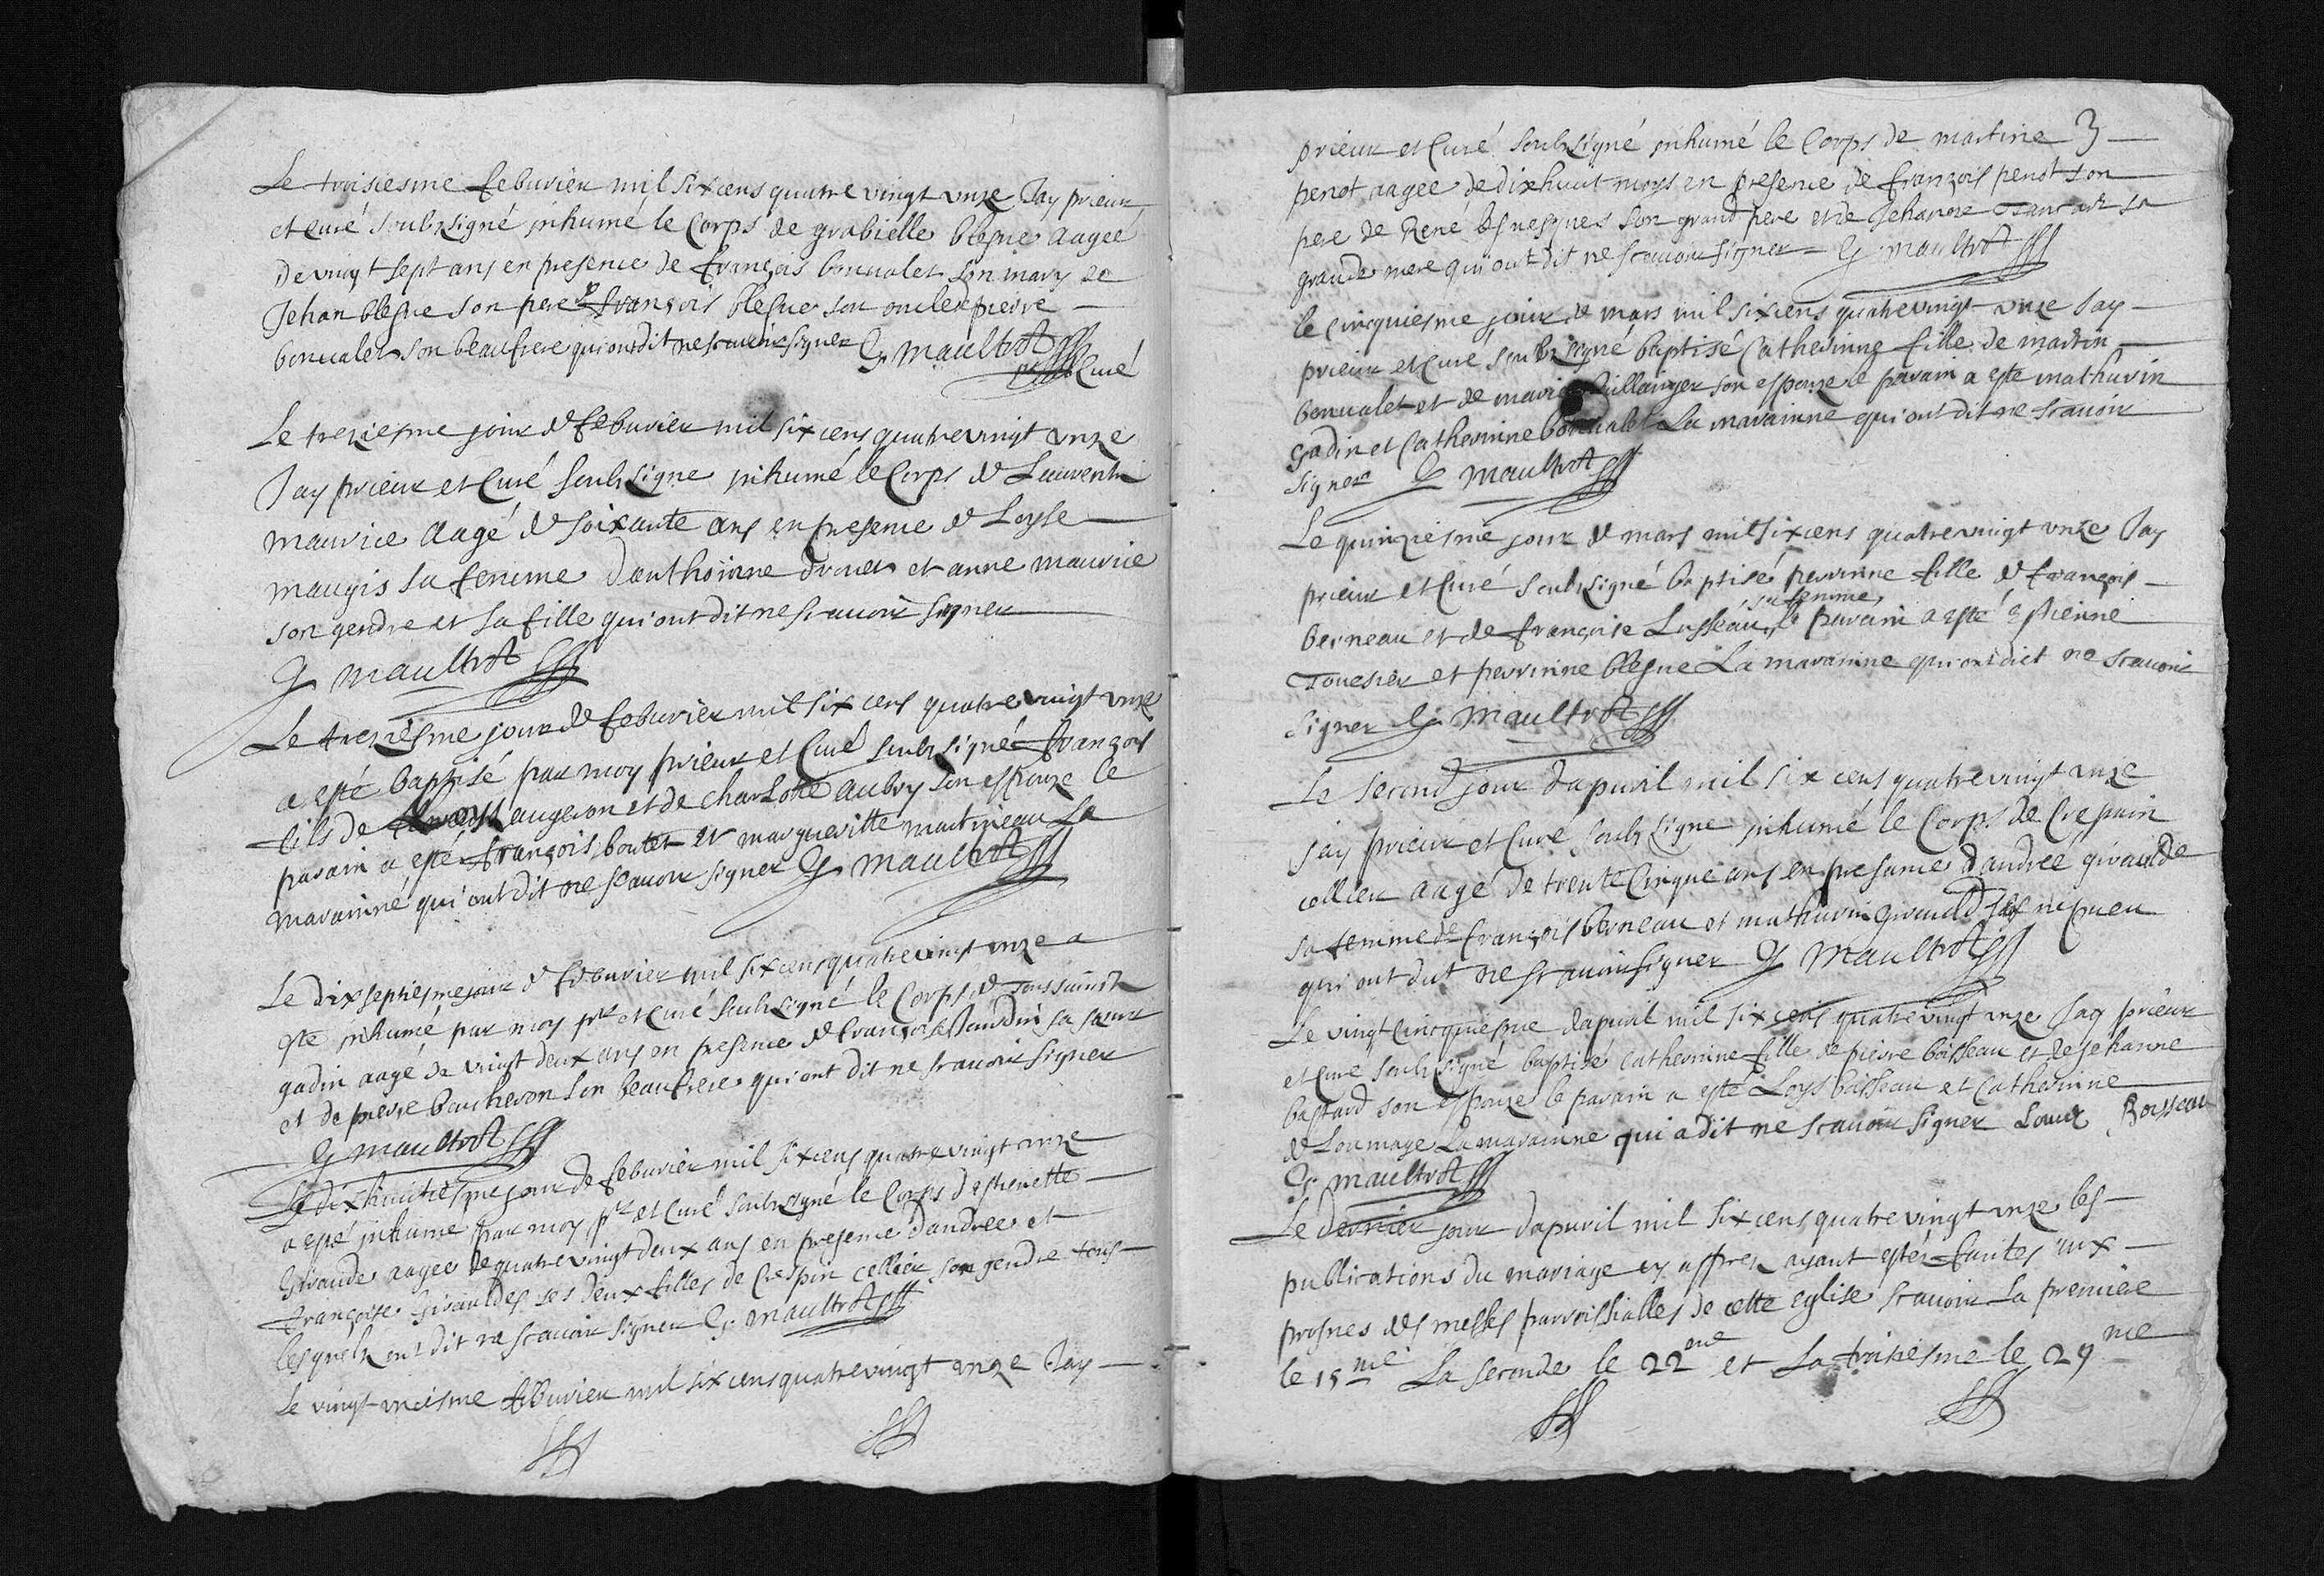 Le troisiesme febuvier mil six cens quatre vingt unze Jay prieur
et curé soubsigné inhumé le Corps de grabielle blesne aagée
de vingt sept ans en presence de françois bonvalet son mary de
Jehan blesne son pere françois blesne son oncle pierre
bonvalet son beaufrere qui ont dit ne scavoir signer G maultrot
curé
Le treziesme jour de febuvier mil six cens quatre vingt unze
Jay prieur et Curé soubsigne inhumé le Corps de Laurent
maurice aagé de soixante ans en presence de Loyse
maugis sa femme danthoinne drouet et anne maurice
son gendre et sa fille qui ont dit ne scavoir signer
G maultrot
Le treziesme jour de febuvier mil six cens quatre vingt unze
a esté baptisé par moy prieur et Curé soubsigné françois
fils de augeron et de charlotte aubry son espouze le
parain a esté françois boutet et margueritte martineau La
marainne qui ont dit ne scavoir signer G maultrot
Le dix septiesme jour de febuvier mil six cens quatre vingt unze a
esté inhumé par moy pr et Curé soubsigné le Corps de toussainct
gadin aagé de vingt deux ans en presence de françoise gaudin sa soeur
et de pierre baucheron son beaufrere qui ont dit ne scavoir signer
G maultrot
Le dixhuitiesme jour de febuvier mil six cens quatre vingt unze
a esté inhume par moy pr et Curé soubsigné le Corps destienette
Giraude aagee de quatre vingt deux ans en presence dandree et
françoise Giraudes ses deux filles de Crespin cellier son gendre tous
lesquels ont dit ne scavoir signer G maultrot
Le vingt uniesme febuvier mil six cens quatre vingt unze Jay
prieur et Curé soubsigné inhumé le Corps de martine 3
penot aagee de dixhuict moys en presence de françois penot son
pere de René son grand pere et de Jehanne sa
grande mere qui ont dit ne scavoir signer G maultrot
le cincquiesme jour de mars mil six cens quatre vingt unze Jay
prieur et Curé soubsigné baptisé Catherinne fille de martin
bonvalet et de marie son espouze le parain a esté mathurin
gadin et Catherinne bonvalet La marainne qui ont dit ne scavoir
signer G maultrot
Le quinziesme jour de mars mil six cens quatre vingt unze Jay
prieur et Curé soubsigné baptisé perrinne fille de françois
sa femme
berneau et de françoise Lusseau le parain a esté estienne
et perrinne blesne La marainne qui ont dict ne scavoir
signer G maultrot
Le second jour dapuril mil six cens quatre vingt unze
jay prieur et Curé soubsigne inhumé le Corps de Crepain
cellier aagé de trente Cinque ans en presance dandreé giraulde
sa femme de françois berneau et mathurin girauld ses nepveu
qui ont dict ne scavoir signer G maultrot
Le vingt Cincquiesme dapuril mil six cens quatre vingt unze Jay prieur
et Curé soubsigné baptisé catherinne fille de pierre boisseau et de Jehanne
bastard son espouze le parain a esté Loys boisseau et Catherinne
de Loumage La marainne qui a dit ne scavoir signer Louis Boisseau
G maultrot
Le dernier jour dapuril mil six cens quatre vingt unze les
publications du mariage cy appres ayant estés faites aux
prosnes des messes parroissialles de cette eglise scavoir La premiere
le 15me La seconde le 22eme et La troisiesme le 29me